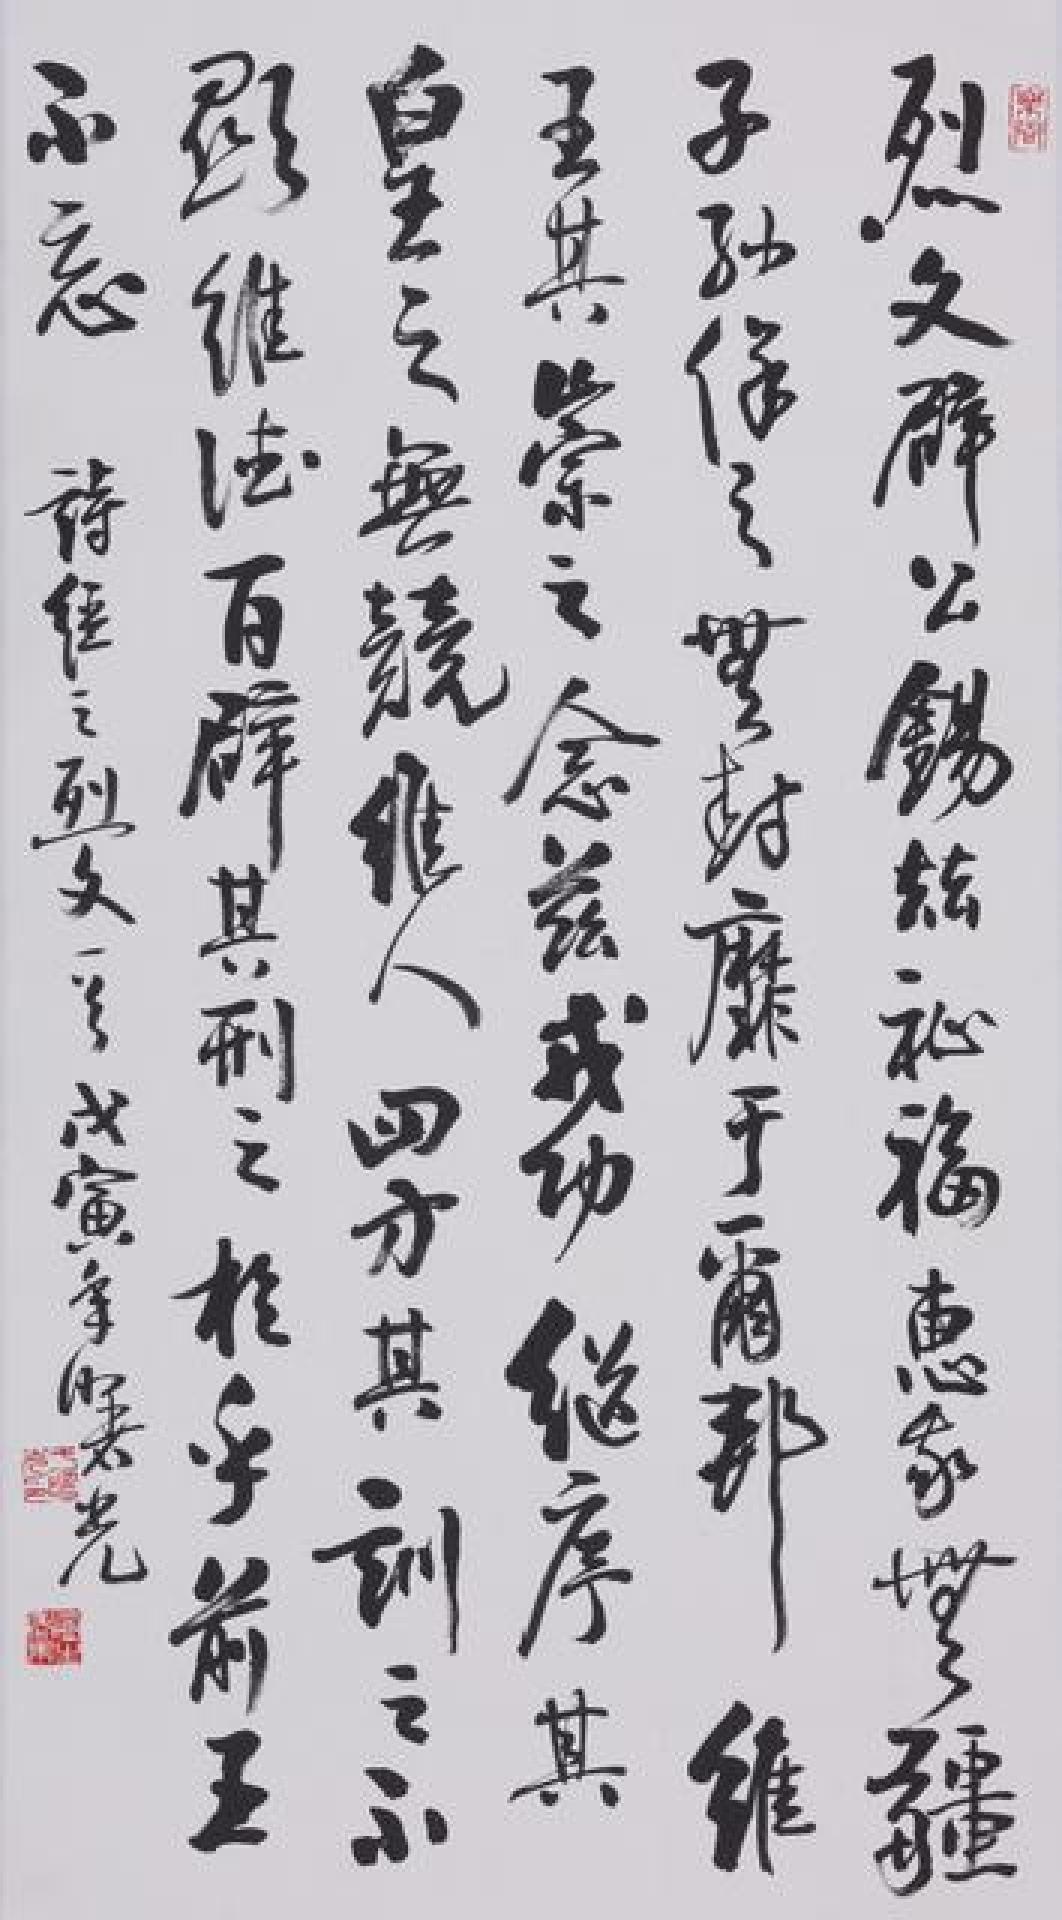 烈文辟公錫茲祉福惠我無疆
子孫保之無封靡于爾邦維
王其崇之念茲戎功繼序其
皇之無競維人四方其訓之不
顯維德百辟其刑之於乎前王
不忘 詩經之烈文一首 戊寅年 光